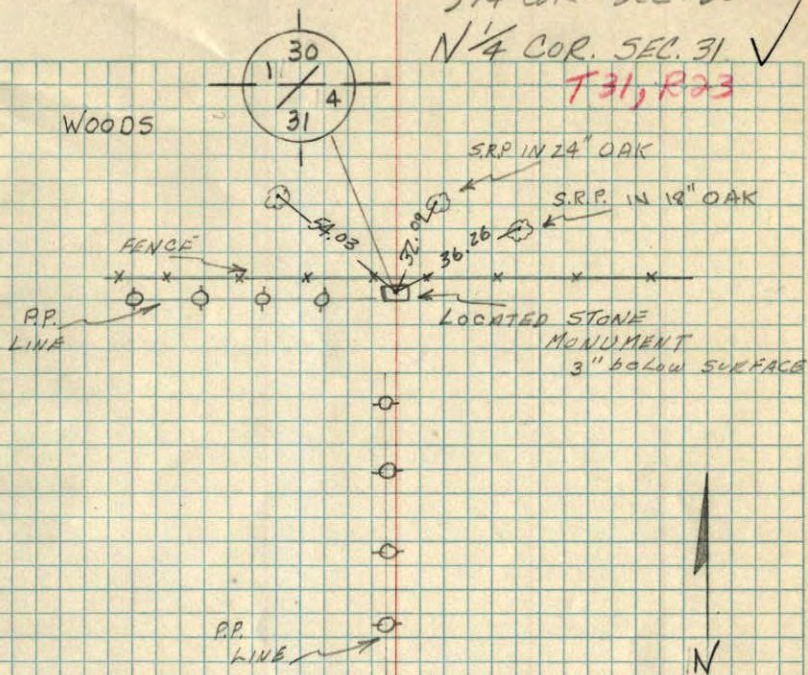 S 1/4 COR. SEC. 30
N 1/4 COR. SEC. 31
T31, R23
30
1
4
31
WOODS
S.R.P. IN 24" OAK
S.R.P. IN 18" OAK
54.03
32.09
36.26
FENCE
P.P.
LINE
LOCATED STONE
MONUMENT
3" below SURFACE
P.P.
LINE
N